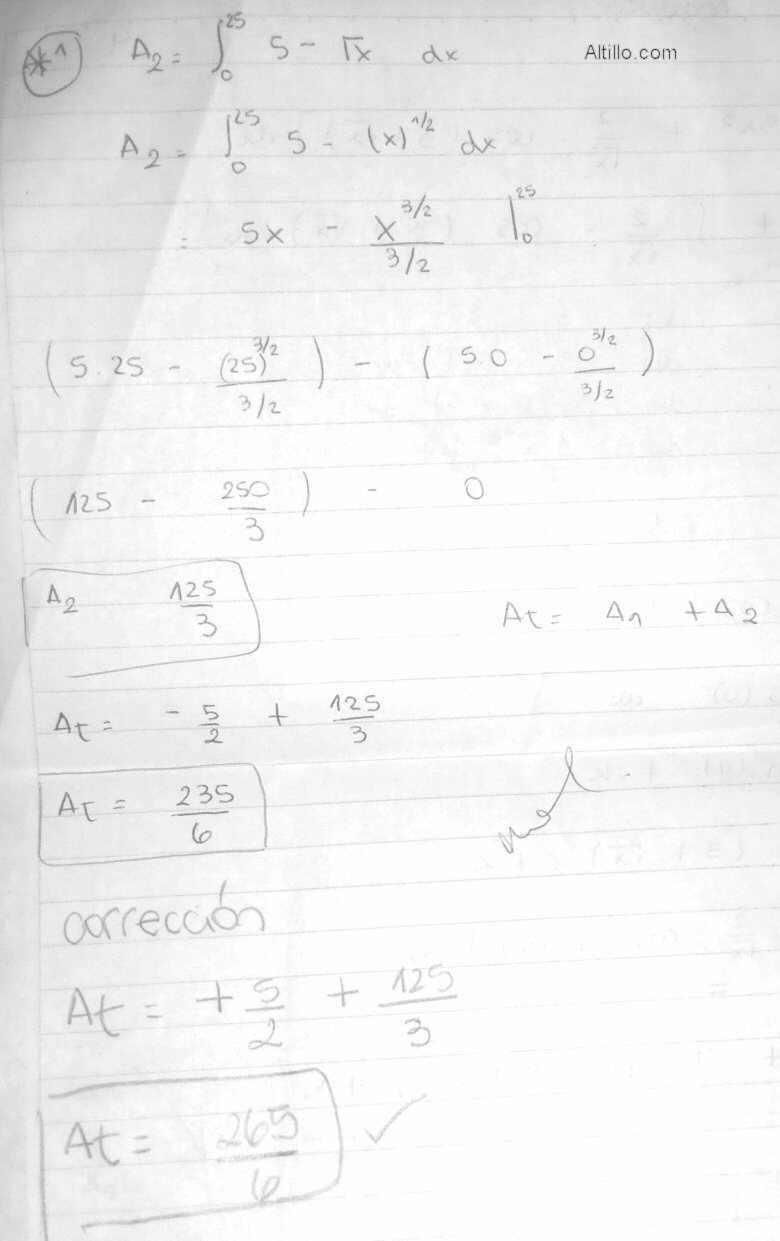 *1 A₂ = ∫₀²⁵ 5 - √x dx Altillo.com
A₂ = ∫₀²⁵ 5 - (x)^1/2 dx
= 5x - x^3/2 / 3/2 |₀²⁵
(5.25 - (25)^3/2 / 3/2) - (5.0 - 0^3/2 / 3/2)
(125 - 250/3) - 0
A₂ 125/3
At = A₁ + A₂
At = - 5/2 + 125/3
At = 235/6
mal
corrección
At = + 5/2 + 125/3
At = 265/6 ✓